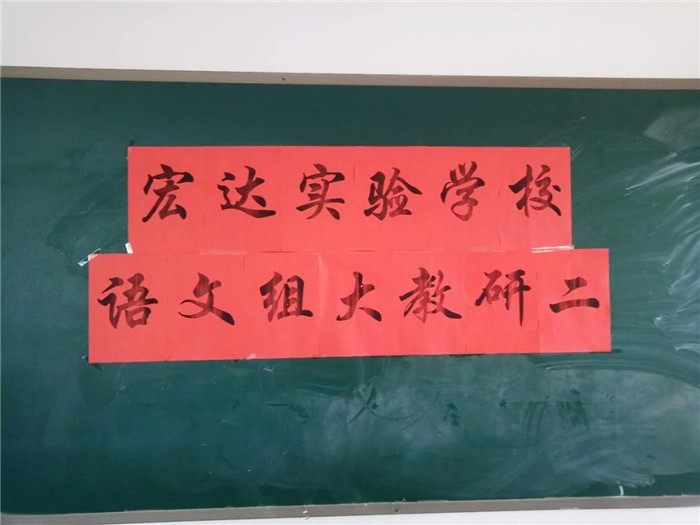 宏达实验学校
语文组大教研二